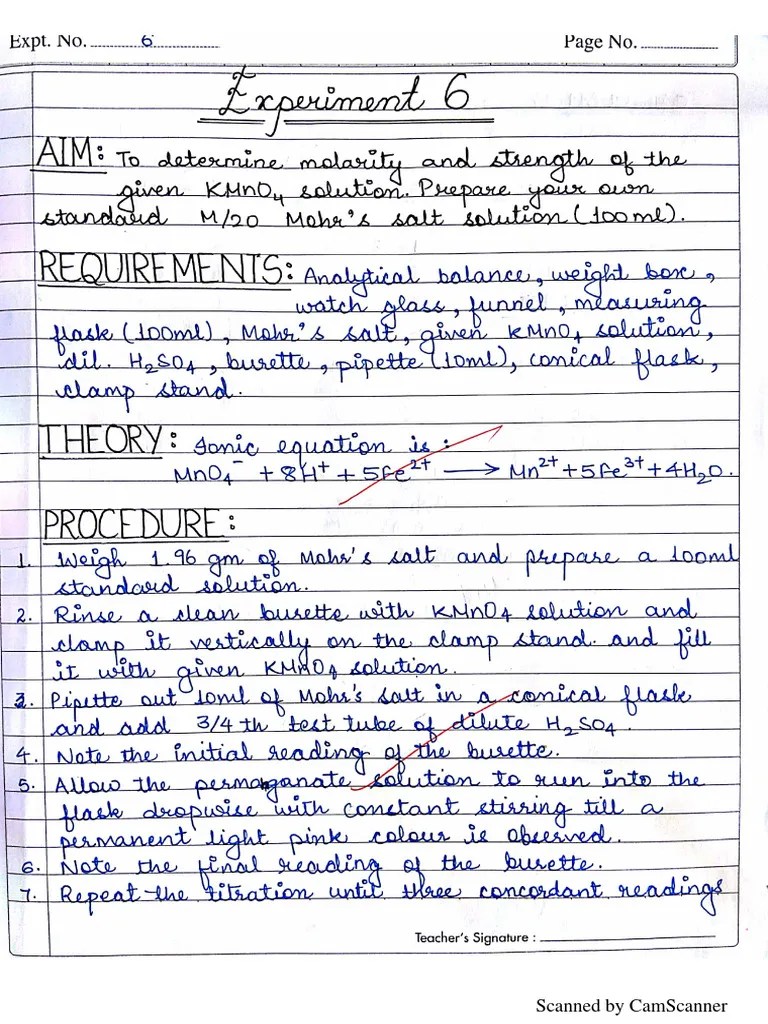 Expt. No. 6 Page No.
Experiment 6
AIM: To determine molarity and strength of the
given KMnO₄ solution. Prepare your own
standard M/20 Mohr's salt solution (100ml).
REQUIREMENTS: Analytical balance, weight box,
watch glass, funnel, measuring
flask (100ml), Mohr's salt, given KMnO₄ solution,
dil. H₂SO₄, burette, pipette (10ml), conical flask,
clamp stand.
THEORY: Ionic equation is :
MnO₄⁻ + 8H⁺ + 5Fe²⁺ ⟶ Mn²⁺ + 5Fe³⁺ + 4H₂O.
PROCEDURE:
1. Weigh 1.96 gm of Mohr's salt and prepare a 100ml
standard solution.
2. Rinse a clean burette with KMnO₄ solution and
clamp it vertically on the clamp stand. and fill
it with given KMnO₄ solution.
3. Pipette out 10ml of Mohr's salt in a conical flask
and add 3/4 th test tube of dilute H₂SO₄.
4. Note the initial reading of the burette.
5. Allow the permanganate solution to run into the
flask dropwise with constant stirring till a
permanent light pink colour is observed.
6. Note the final reading of the burette.
7. Repeat the titration until three concordant readings
Teacher's Signature :
Scanned by CamScanner